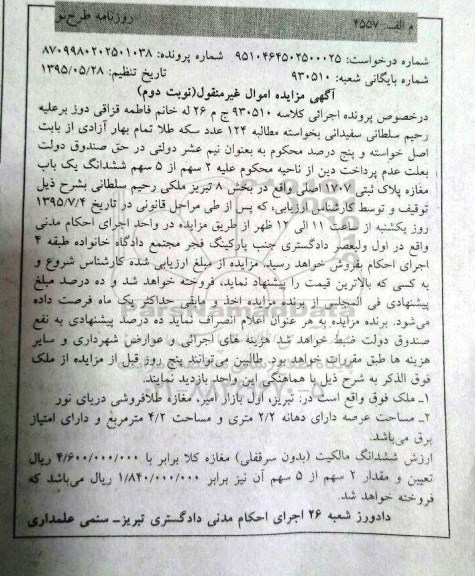 روزنامه طرح نو
م الف: ۴۵۵۷
شماره درخواست: ۹۵۱۰۴۶۴۵۰۲۵۰۰۰۲۵ شماره پرونده: ۸۷۰۹۹۸۰۲۰۲۵۰۱۰۳۸
شماره بایگانی شعبه: ۹۳۰۵۱۰ تاریخ تنظیم: ۱۳۹۵/۰۵/۲۸
آگهی مزایده اموال غیرمنقول(نوبت دوم)
درخصوص پرونده اجرائی کلاسه ۹۳۰۵۱۰ ج م ۲۶ له خانم فاطمه قزاقی دوز برعلیه
رحیم سلطانی سفیدانی بخواسته مطالبه ۱۲۴ عدد سکه طلا تمام بهار آزادی از بابت
اصل خواسته و پنج درصد محکوم به بعنوان نیم عشر دولتی در حق صندوق دولت
بعلت عدم پرداخت دین از ناحیه محکوم علیه ۲ سهم از ۵ سهم ششدانگ یک باب
مغازه پلاک ثبتی ۱۷۰۷ اصلی واقع در بخش ۸ تبریز ملکی رحیم سلطانی بشرح ذیل
توقیف و توسط کارشناس ارزیابی، که پس از طی مراحل قانونی در تاریخ ۱۳۹۵/۷/۴
روز یکشنبه از ساعت ۱۱ الی ۱۲ ظهر از طریق مزایده در واحد اجرای احکام مدنی
واقع در اول ولیعصر دادگستری جنب پارکینگ فجر مجتمع دادگاه خانواده طبقه ۴
اجرای احکام بفروش خواهد رسید. مزایده از مبلغ ارزیابی شده کارشناس شروع و
به کسی که بالاترین قیمت را پیشنهاد نماید، فروخته خواهد شد و ده درصد مبلغ
پیشنهادی فی المجلس از برنده مزایده اخذ و مابقی حداکثر یک ماه فرصت داده
می‌شود. برنده مزایده به هر عنوان اعلام انصراف نماید ده درصد پیشنهادی به نفع
صندوق دولت ضبط خواهد شد. هزینه های اجرائی و عوارض شهرداری و سایر
هزینه ها طبق مقررات خواهد بود. طالبین می‌توانند پنج روز قبل از مزایده از ملک
فوق الذکر به شرح ذیل با هماهنگی این واحد بازدید نمایند.
۱ـ ملک فوق واقع است در: تبریز، اول بازار امیر، مغازه طلافروشی دریای نور
۲ـ مساحت عرصه دارای دهانه ۲/۲ متری و مساحت ۴/۲ مترمربع و دارای امتیاز
برق می‌باشد.
ارزش ششدانگ مالکیت (بدون سرقفلی) مغازه کلا برابر با ۴/۶۰۰/۰۰۰/۰۰۰ ریال
تعیین و مقدار ۲ سهم از ۵ سهم آن نیز برابر ۱/۸۴۰/۰۰۰/۰۰۰ ریال می‌باشد که
فروخته خواهد شد.
دادورز شعبه ۲۶ اجرای احکام مدنی دادگستری تبریزـ ستمی علمداری